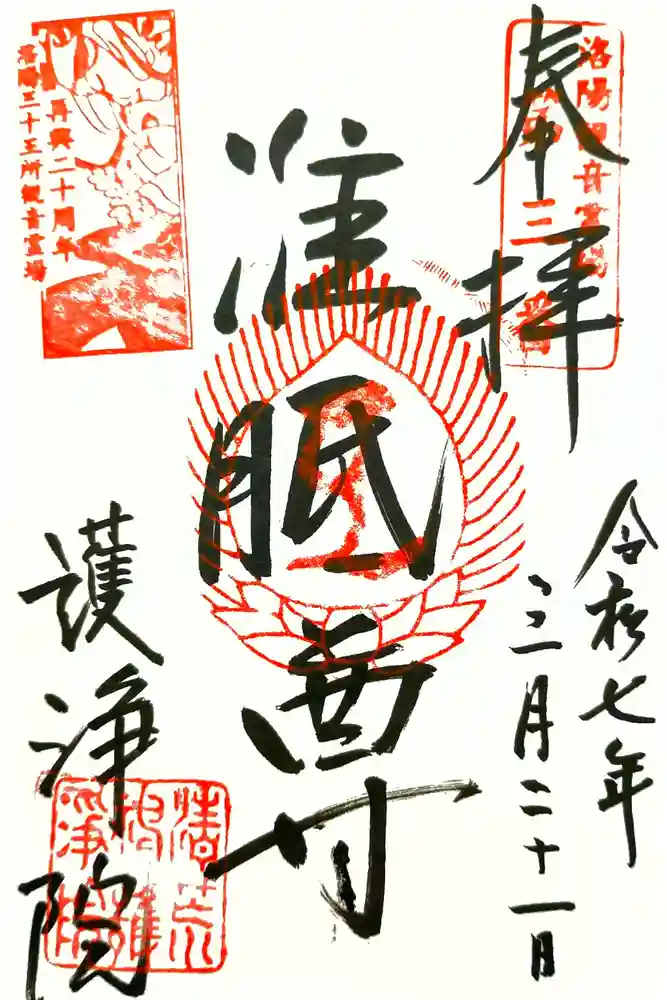 奉拝
洛陽観音霊場
第三番
令和七年
三月二十一日
准胝尊
再興二十周年
洛陽三十三所観音霊場
護浄院